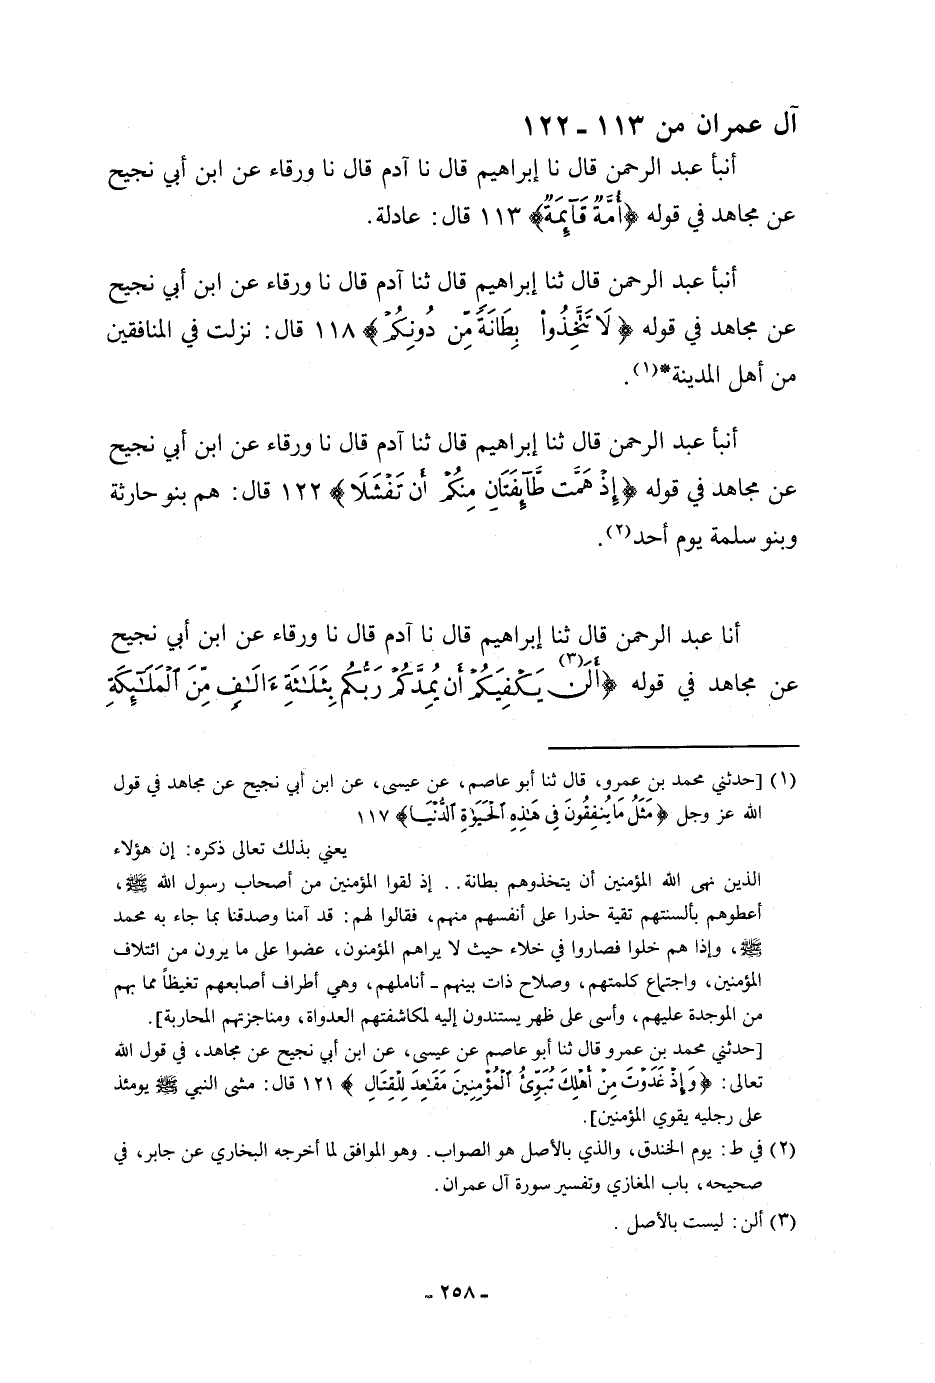 آل عمران من ١١٣ ـ ١٢٢
أنبأ عبد الرحمن قال نا إبراهيم قال نا آدم قال نا ورقاء عن ابن أبي نجيح
عن مجاهد في قوله ﴿أُمَّةٌ قَآئِمَةٌ﴾ ١١٣ قال: عادلة.
أنبأ عبد الرحمن قال ثنا إبراهيم قال ثنا آدم قال نا ورقاء عن ابن أبي نجيح
عن مجاهد في قوله ﴿لَا تَتَّخِذُواْ بِطَانَةً مِّن دُونِكُمْ﴾ ١١٨ قال: نزلت في المنافقين
من أهل المدينة*(١).
أنبأ عبد الرحمن قال ثنا إبراهيم قال ثنا آدم قال نا ورقاء عن ابن أبي نجيح
عن مجاهد في قوله ﴿إِذْ هَمَّت طَّآئِفَتَانِ مِنكُمْ أَن تَفْشَلَا﴾ ١٢٢ قال: هم بنو حارثة
وبنو سلمة يوم أحد(٢).
أنا عبد الرحمن قال ثنا إبراهيم قال نا آدم قال نا ورقاء عن ابن أبي نجيح
عن مجاهد في قوله ﴿أَلَن(٣) يَكْفِيَكُمْ أَن يُمِدَّكُمْ رَبُّكُم بِثَلَٰثَةِ ءَالَٰفٍ مِّنَ ٱلْمَلَٰٓئِكَةِ
(١) [حدثني محمد بن عمرو، قال ثنا أبو عاصم، عن عيسى، عن ابن أبي نجيح عن مجاهد في قول
الله عز وجل ﴿مَثَلُ مَا يُنفِقُونَ فِى هَٰذِهِ ٱلْحَيَوٰةِ ٱلدُّنْيَا﴾ ١١٧
يعني بذلك تعالى ذكره: إن هؤلاء
الذين نهى الله المؤمنين أن يتخذوهم بطانة.. إذ لقوا المؤمنين من أصحاب رسول الله ﷺ،
أعطوهم بألسنتهم تقية حذرا على أنفسهم منهم، فقالوا لهم: قد آمنا وصدقنا بما جاء به محمد
ﷺ، وإذا هم خلوا فصاروا في خلاء حيث لا يراهم المؤمنون، عضوا على ما يرون من ائتلاف
المؤمنين، واجتماع كلمتهم، وصلاح ذات بينهم ـ أناملهم، وهي أطراف أصابعهم تغيظاً مما بهم
من الموجدة عليهم، وأسى على ظهر يستندون إليه لمكاشفتهم العدواة، ومناجزتهم المحاربة].
[حدثني محمد بن عمرو قال ثنا أبو عاصم عن عيسى، عن ابن أبي نجيح عن مجاهد، في قول الله
تعالى: ﴿وَإِذْ غَدَوْتَ مِنْ أَهْلِكَ تُبَوِّئُ ٱلْمُؤْمِنِينَ مَقَٰعِدَ لِلْقِتَالِ﴾ ١٢١ قال: مشى النبي ﷺ يومئذ
على رجليه يقوي المؤمنين].
(٢) في ط: يوم الخندق، والذي بالأصل هو الصواب. وهو الموافق لما أخرجه البخاري عن جابر، في
صحيحه، باب المغازي وتفسير سورة آل عمران.
(٣) ألن: ليست بالأصل.
ـ ٢٥٨ ـ